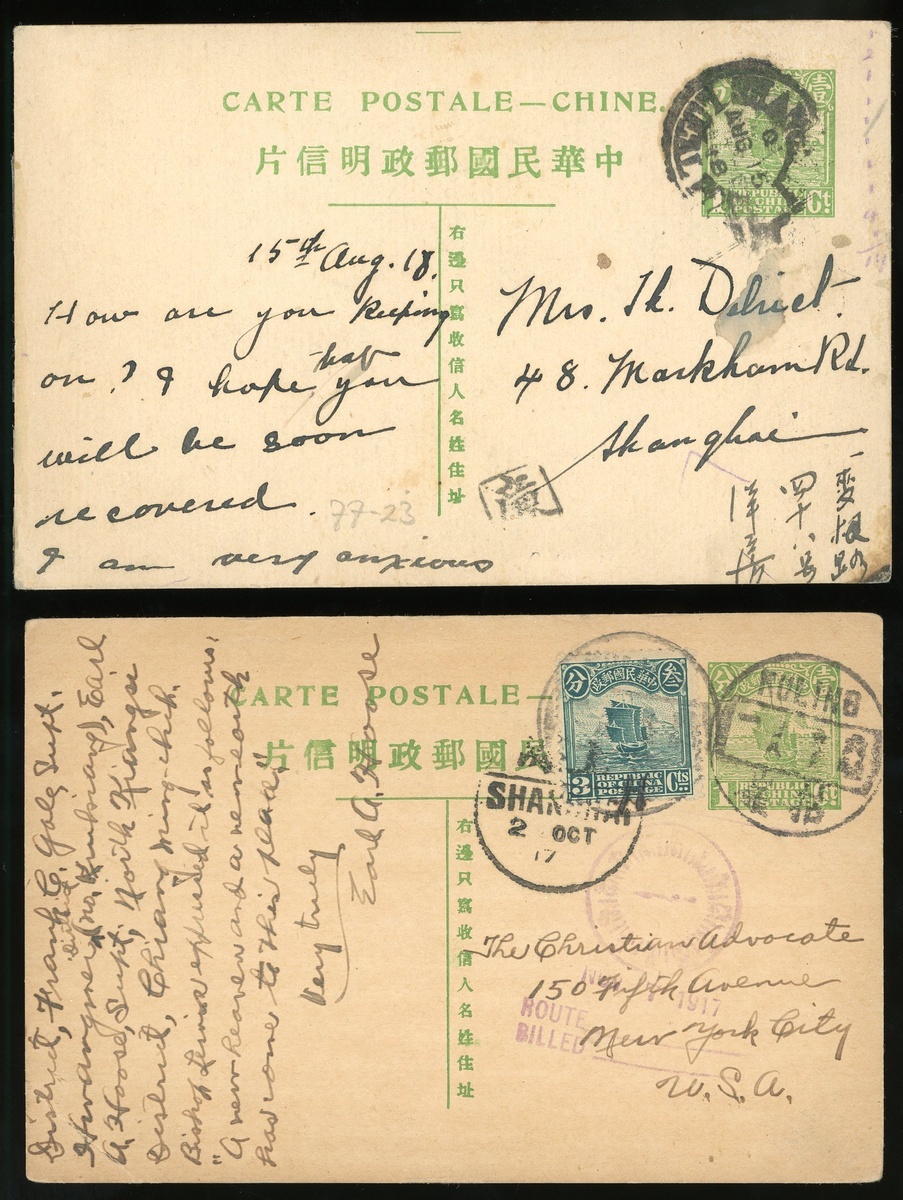 CARTE POSTALE—CHINE.
片信明政郵國民華中
分 壹
REPUBLIC
OF CHINA
POSTAGE
Ct.
AUG 15
18
右邊只寫收信人名姓住址
15th Aug. 18.
How are you keeping
on? I hope that you
will be soon
recovered.
I am very anxious
77-23
Mrs. Th. Delrict.
48. Markham Rd.
Shanghai
四十八号
洋房
CARTE POSTALE—
片信明政郵國民
分 政郵國民華中 叁
3 REPUBLIC Cts
OF CHINA
POSTAGE
分 壹
1 REPUBLIC
KULING
SHANGHAI
2 OCT
17
右邊只寫收信人名姓住址
District, Frank C. Gale, Supt.
A. Hoose, Supt., North Kiangsi
District, Chiang Ming-chih.
Bishop Lewis expressed it as follows:
"A new heaven and a new earth
has come to this place."
Very truly
Earl A. Hoose
The Christian Advocate
150 Fifth Avenue
New York City
U.S.A.
1917
ROUTE
BILLED